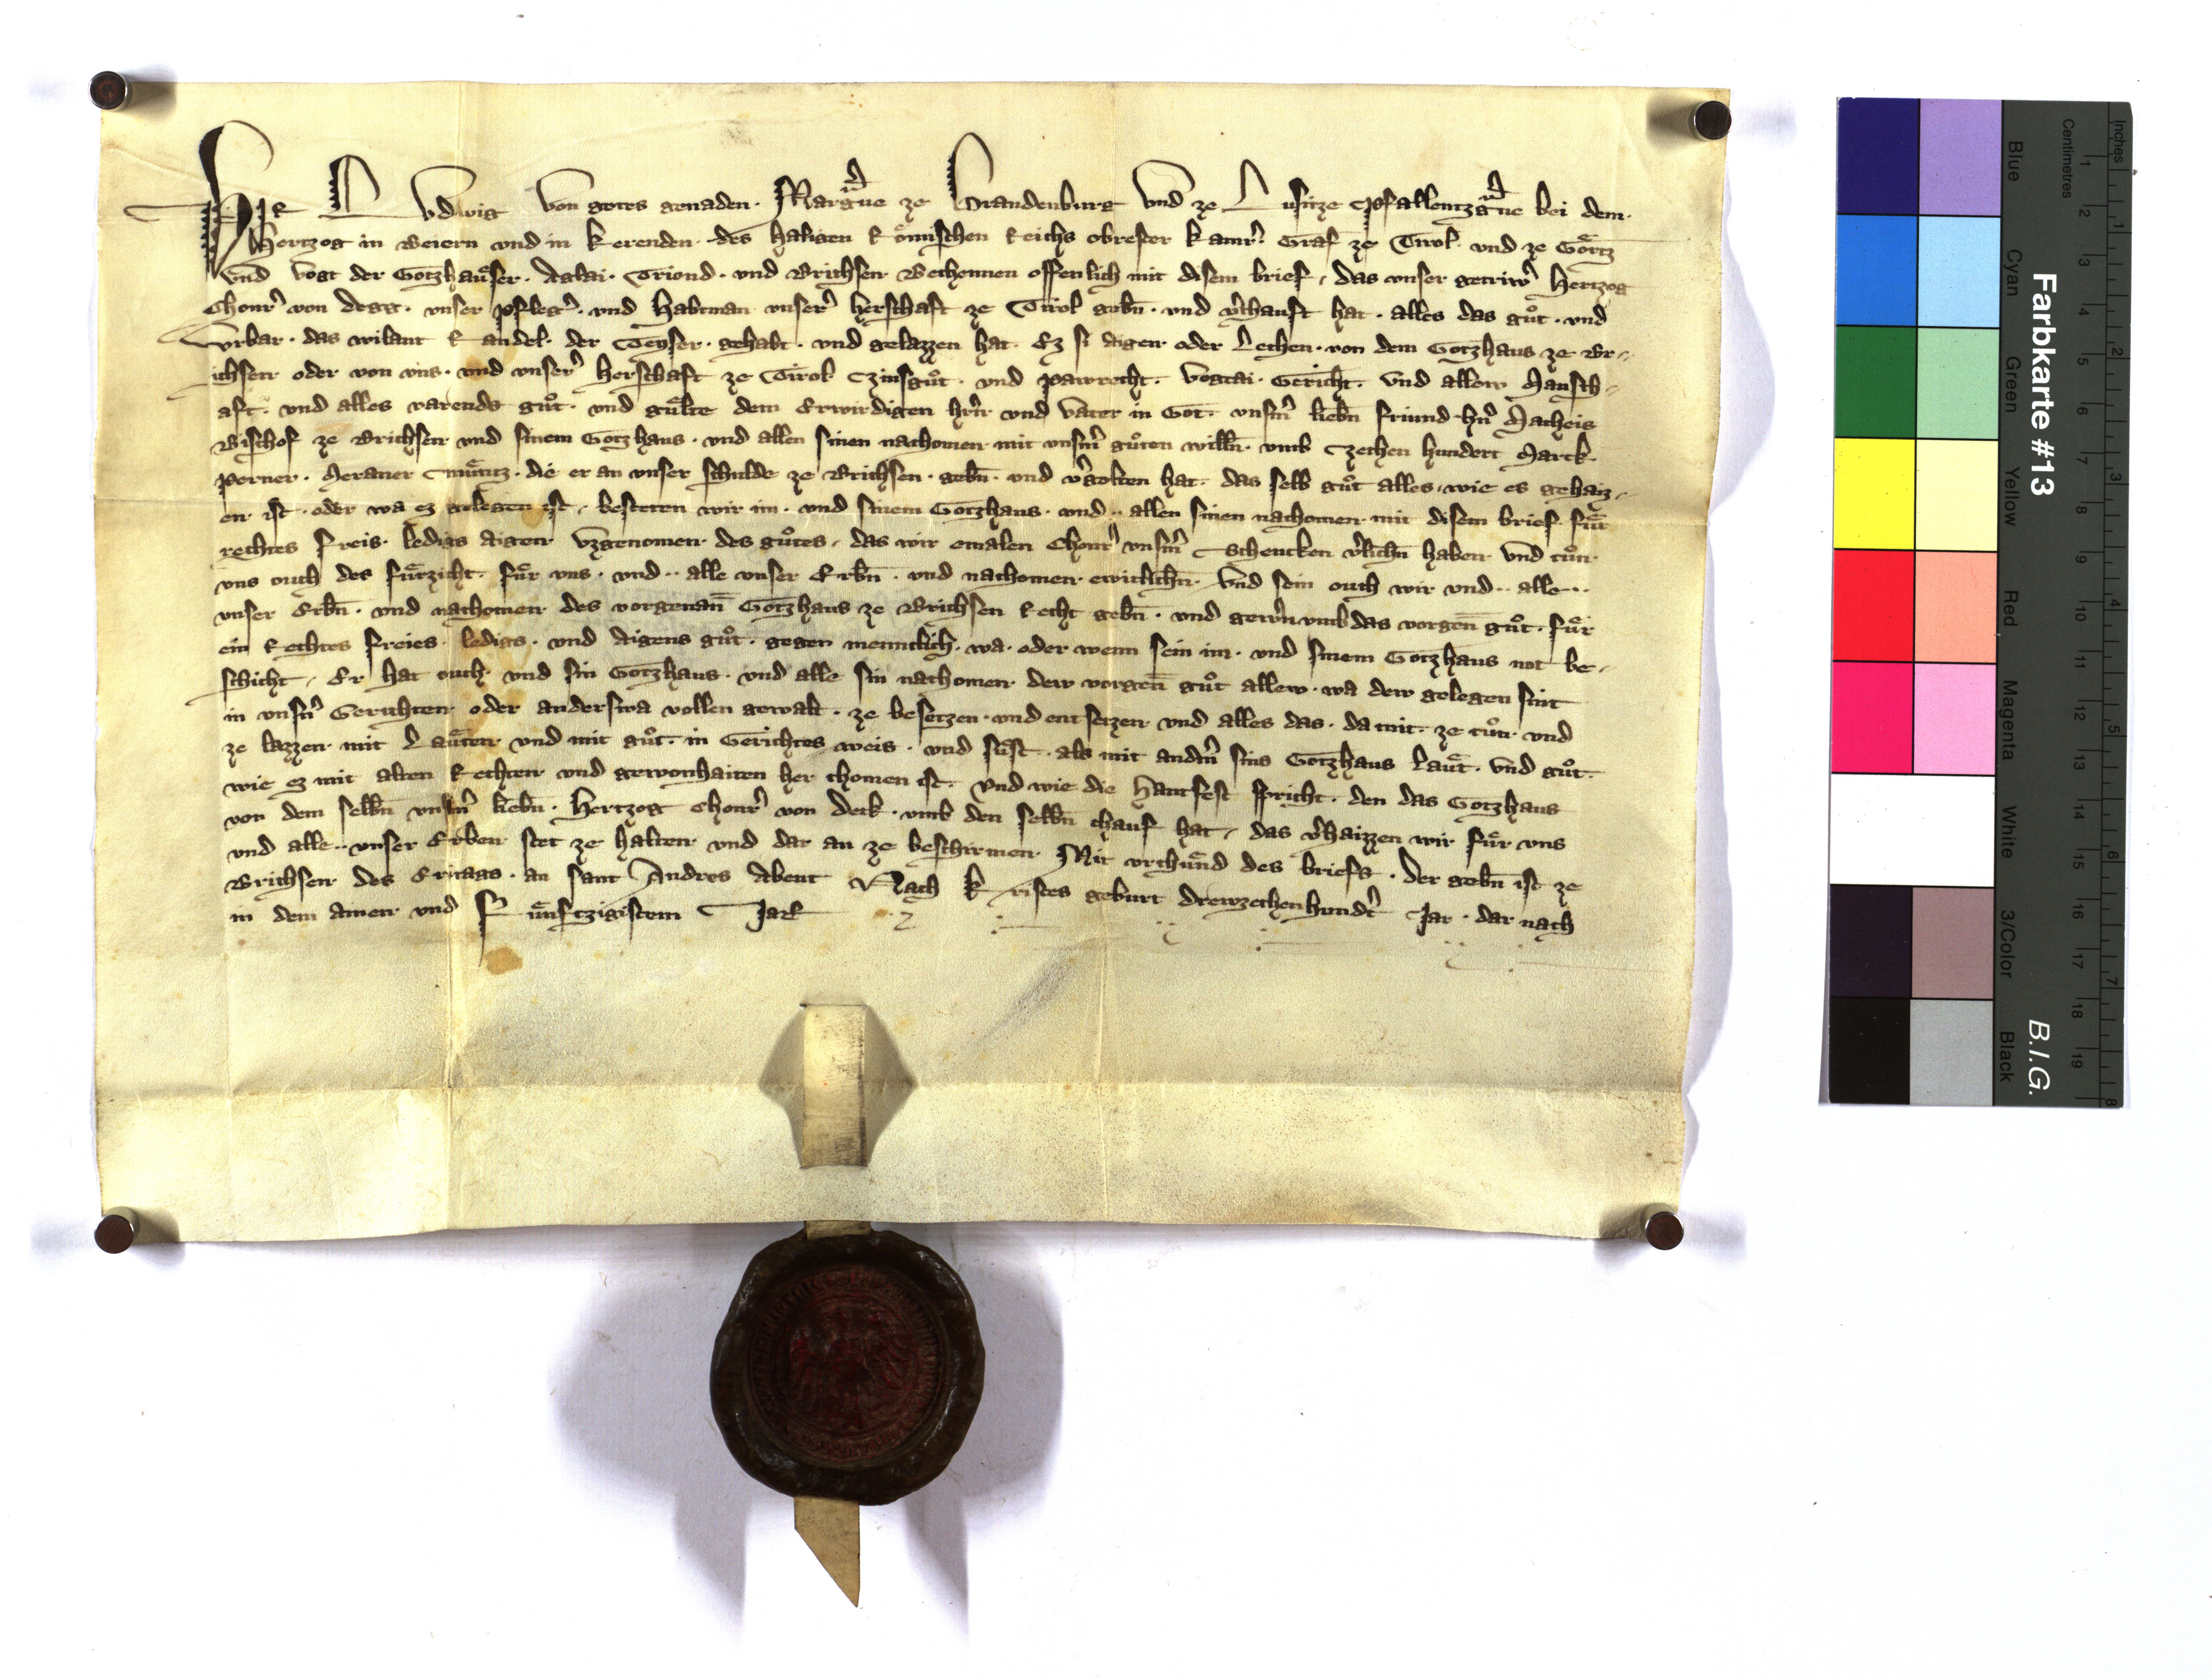 Wir Ludwig von gotes genaden. Margraue ze Brandenburg vnd ze Lusitze Pfallentzgraue bei dem
Hertzog in Beiern vnd in Kerenden. des haligen Römischen Reichs obrester kamrer. Graf ze Tirol. vnd ze Görtz
vnd Vogt der Gotzhauͤser. Aglai. Triend. vnd Brichsen Bechennen offenlich mit disem brief, das vnser getriwr̄ Hertzog
Chonr̄ von Degg. vnser Pfleger̄. vnd Habtman vnserr̄ herschaft ze Tirol gebn̄. vnd v̄chauft hat. alles das guͦt. vnd
Vrbar. das wilant Randel. der Teyser. gehabt. vnd gelazzen hat. Ez si aigen oder Lechen. von dem Gotzhaus ze Br-
ichsen oder von vns. vnd vnserr̄ herschaft ze Tirol Czinsguͦt. vnd pawrecht. Vogtai. Gericht. vnd allew Mansch-
aft. vnd alles varends guͦt. vnd guͤlte dem Erwirdigen hr̄n vnd vater in Got. vnsm̄ liebn̄ friund hn̄ Matheis
Bischof ze Brichsen vnd sinem Gotzhaus. vnd allen sinen nachomen mit vnsm̄ guͦten willn̄. vmb Czechen hundert Marck.
perner. Meraner Muͤntz. die er an vnser schulde ze Brichsen. gebn̄. vnd v̄golten hat. das selb guͦt alles, wie es gehaiz-
en ist. oder wa ez gelegen ist, besteten wir im. vnd sinem Gotzhaus. vnd .. allen sinen nachomen mit disem brief fuͤr
rechtes freis. ledigs aigen Vzgenomen des guͦtes, das wir emalen Chonr̄ vnsm̄ Schencken v̄lichn̄ haben vnd tuͦn
vns ouch des fuͤrzicht. fuͤr vns. vnd .. alle vnser Erbn̄. vnd nachomen ewiclichn̄. Vnd sein ouch wir vnd .. alle ..
vnser Erbn̄. vnd nachomen des vorgenan̄ Gotzhaus ze Brichsen Recht gebn̄. vnd gewern̄ vmb das vorgen̄ guͦt. fuͤr
ein Rechtes freies. ledigs. vnd Aigens guͦt. gegen menniclich. wa. oder wenn sein im. vnd sinem Gotzhaus not be-
schicht, Er hat ouch. vnd sin Gotzhaus. vnd alle sin nachomen dew vorgen̄ guͦt allew. wa dew gelegen sint
in vnsn̄ Gerichten oder anderswa vollen gewalt. ze besetzen. vnd entsetzen vnd alles das. da mit. ze tuͦn. vnd
ze lazzen mit Lauͤten vnd mit guͦt. in Gerichtes weis. vnd suͤst. als mit andn̄ sins Gotzhaus Lauͤt. vnd guͦt.
wie ez mit alten Rechten vnd gewonhaiten her chomen ist. Vnd wie die Hantfest spricht. den das Gotzhaus
von dem selbn̄ vnsm̄ liebn̄. Hertzog Chonr̄ von Deck. vmb den selbn̄ chauf hat, das v̄haizzen wir fuͤr vns
vnd alle .. vnser Erben stet ze halten vnd dar an ze beschirmen Mit vrchuͤnd des briefs. Der gebn̄ ist ze
Brichsen des Eritags. an sant Andres Abent Nach Kristes geburt drewzechenhundt̄ Jar. dar nach
in dem ainen vnd Fuͤnftzigistem Jare
Farbkarte #13
B.I.G.
Inches
Centimetres
Blue
Cyan
Green
Yellow
Red
Magenta
White
3/Color
Black
1 2 3 4 5 6 7 8 9 10 11 12 13 14 15 16 17 18 19
1 2 3 4 5 6 7 8